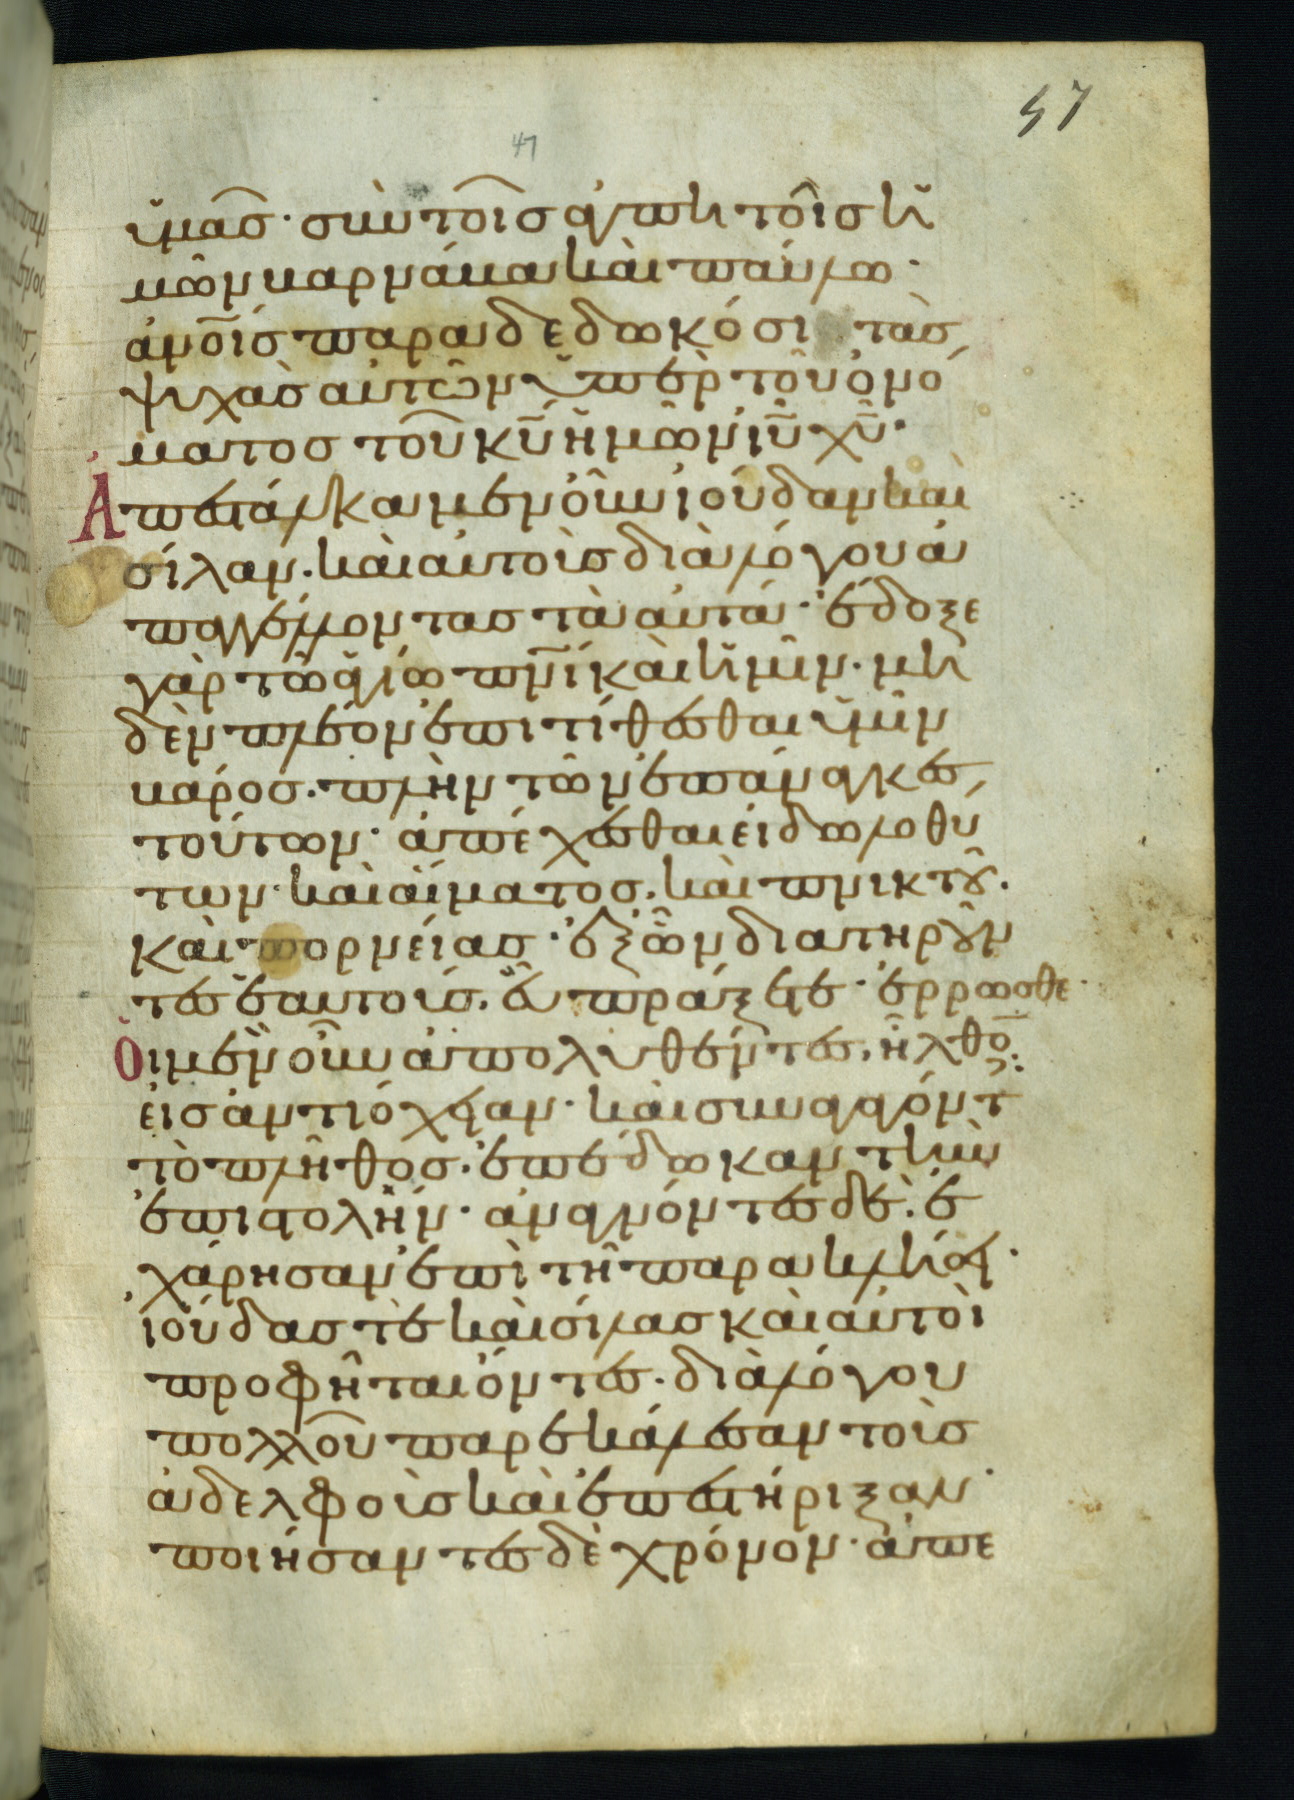 57
47
ὑμᾶσ· σὺν τοῖσ ἀγαπητοῖσ ἡ
μῶν βαρνάβα καὶ παύλω·
ἀνοῖσ παραδεδωκόσι τὰσ
ψυχὰσ αὐτῶν ὑπὲρ τοῦ ὀνό
ματοσ τοῦ κυ ἡμῶν ιυ χυ·
Ἀπεστάλκαμεν οὖν ἰούδαν καὶ
σίλαν· καὶ αὐτοὺσ διὰ λόγου ἀ
παγγέλλοντασ τὰ αὐτά· ἔδοξε
γὰρ τῶ ἁγίω πνι καὶ ἡμῖν· μη
δὲν πλέον ἐπιτίθεσθαι ὑμῖν
βάροσ· πλὴν τῶν ἐπάναγκεσ
τούτων· ἀπέχεσθαι εἰδωλοθύ
των· καὶ αἵματοσ, καὶ πνικτοῦ·
καὶ πορνείασ· ἐξ ὧν διατηροῦν
τεσ ἑαυτοὺσ, εὖ πράξετε· ἔρρωσθε·
Οἱ μὲν οὖν ἀπολυθέντεσ, ἦλθον
εἰσ ἀντιόχειαν· καὶ συναγαγόντεσ
τὸ πλῆθοσ· ἐπέδωκαν τὴν
ἐπιστολήν· ἀναγνόντεσ δὲ· ἐ
χάρησαν ἐπὶ τῆ παρακλήσει·
ἰούδασ τὲ καὶ σίλασ καὶ αὐτοὶ
προφῆται ὄντεσ· διὰ λόγου
πολλοῦ παρεκάλεσαν τοὺσ
ἀδελφοὺσ καὶ ἐπεστήριξαν·
ποιήσαντεσ δὲ χρόνον· ἀπε